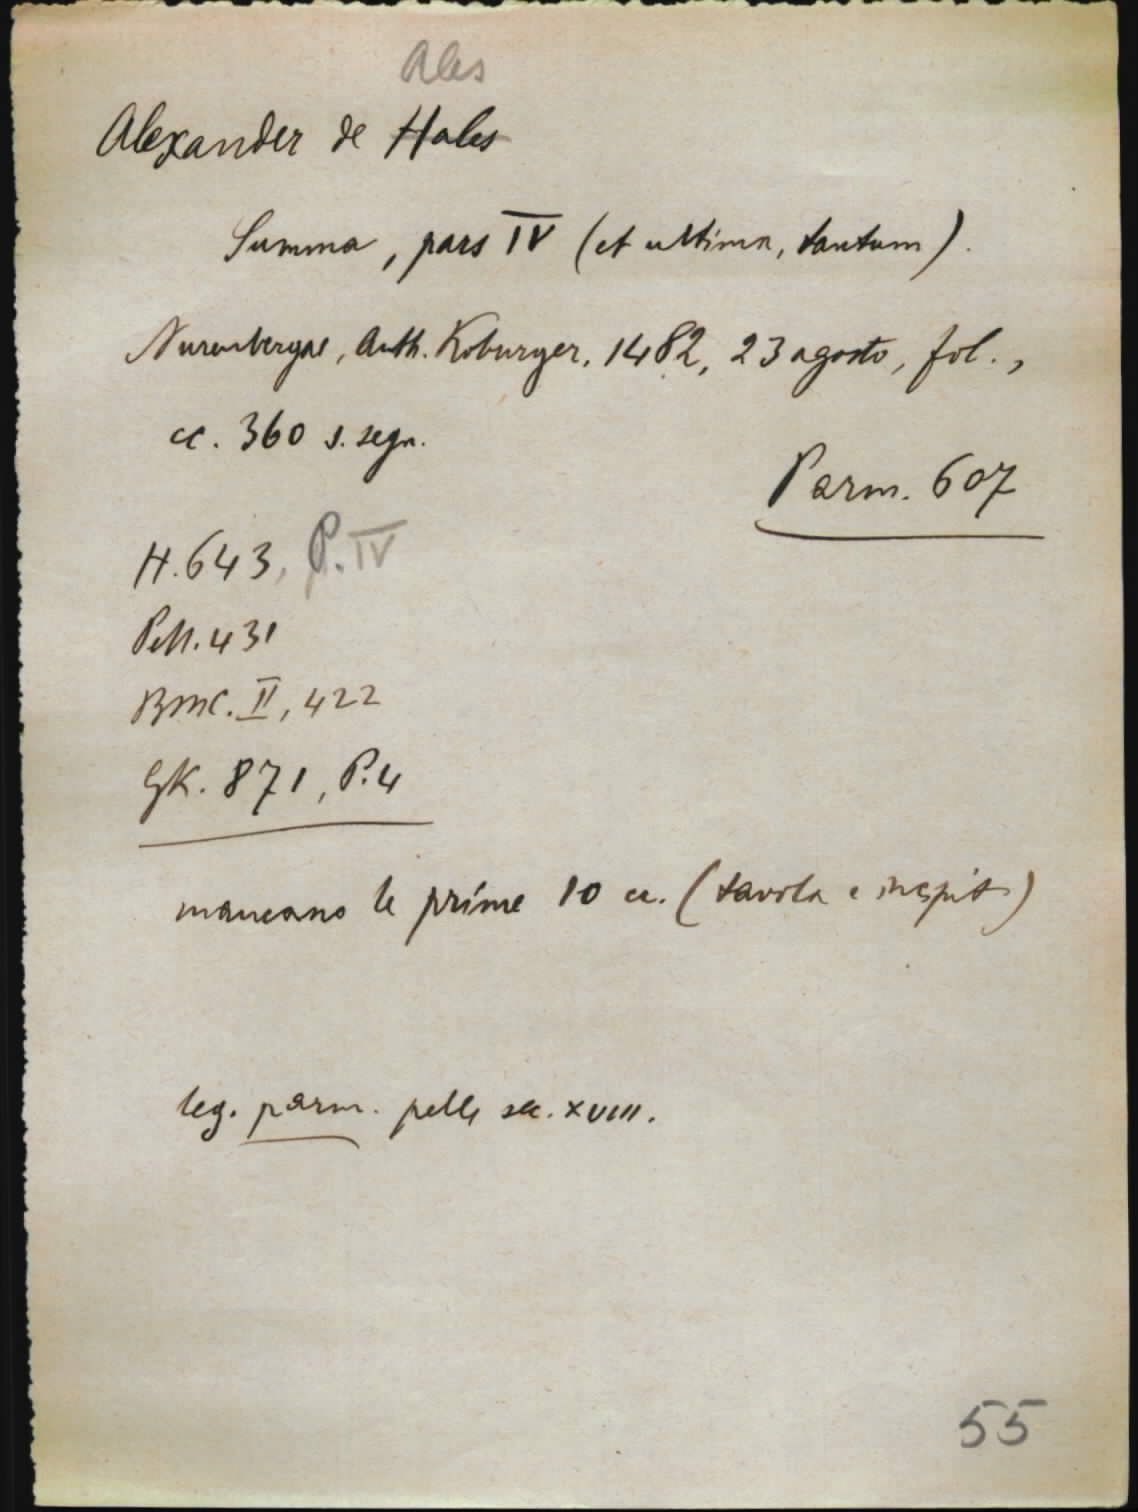 Ales
Alexander de Hales
Summa, pars IV (et ultima, tantum).
Nurembergae, Anth. Koburger, 1482, 23 agosto, fol.,
cc. 360 s. segn.
Parm. 607
H. 643, P. IV
Pell. 431
BMC. II, 422
GK. 871, P. 4
mancano le prime 10 cc. (tavola e incipit)
leg. parm. pelle sec. XVIII.
55